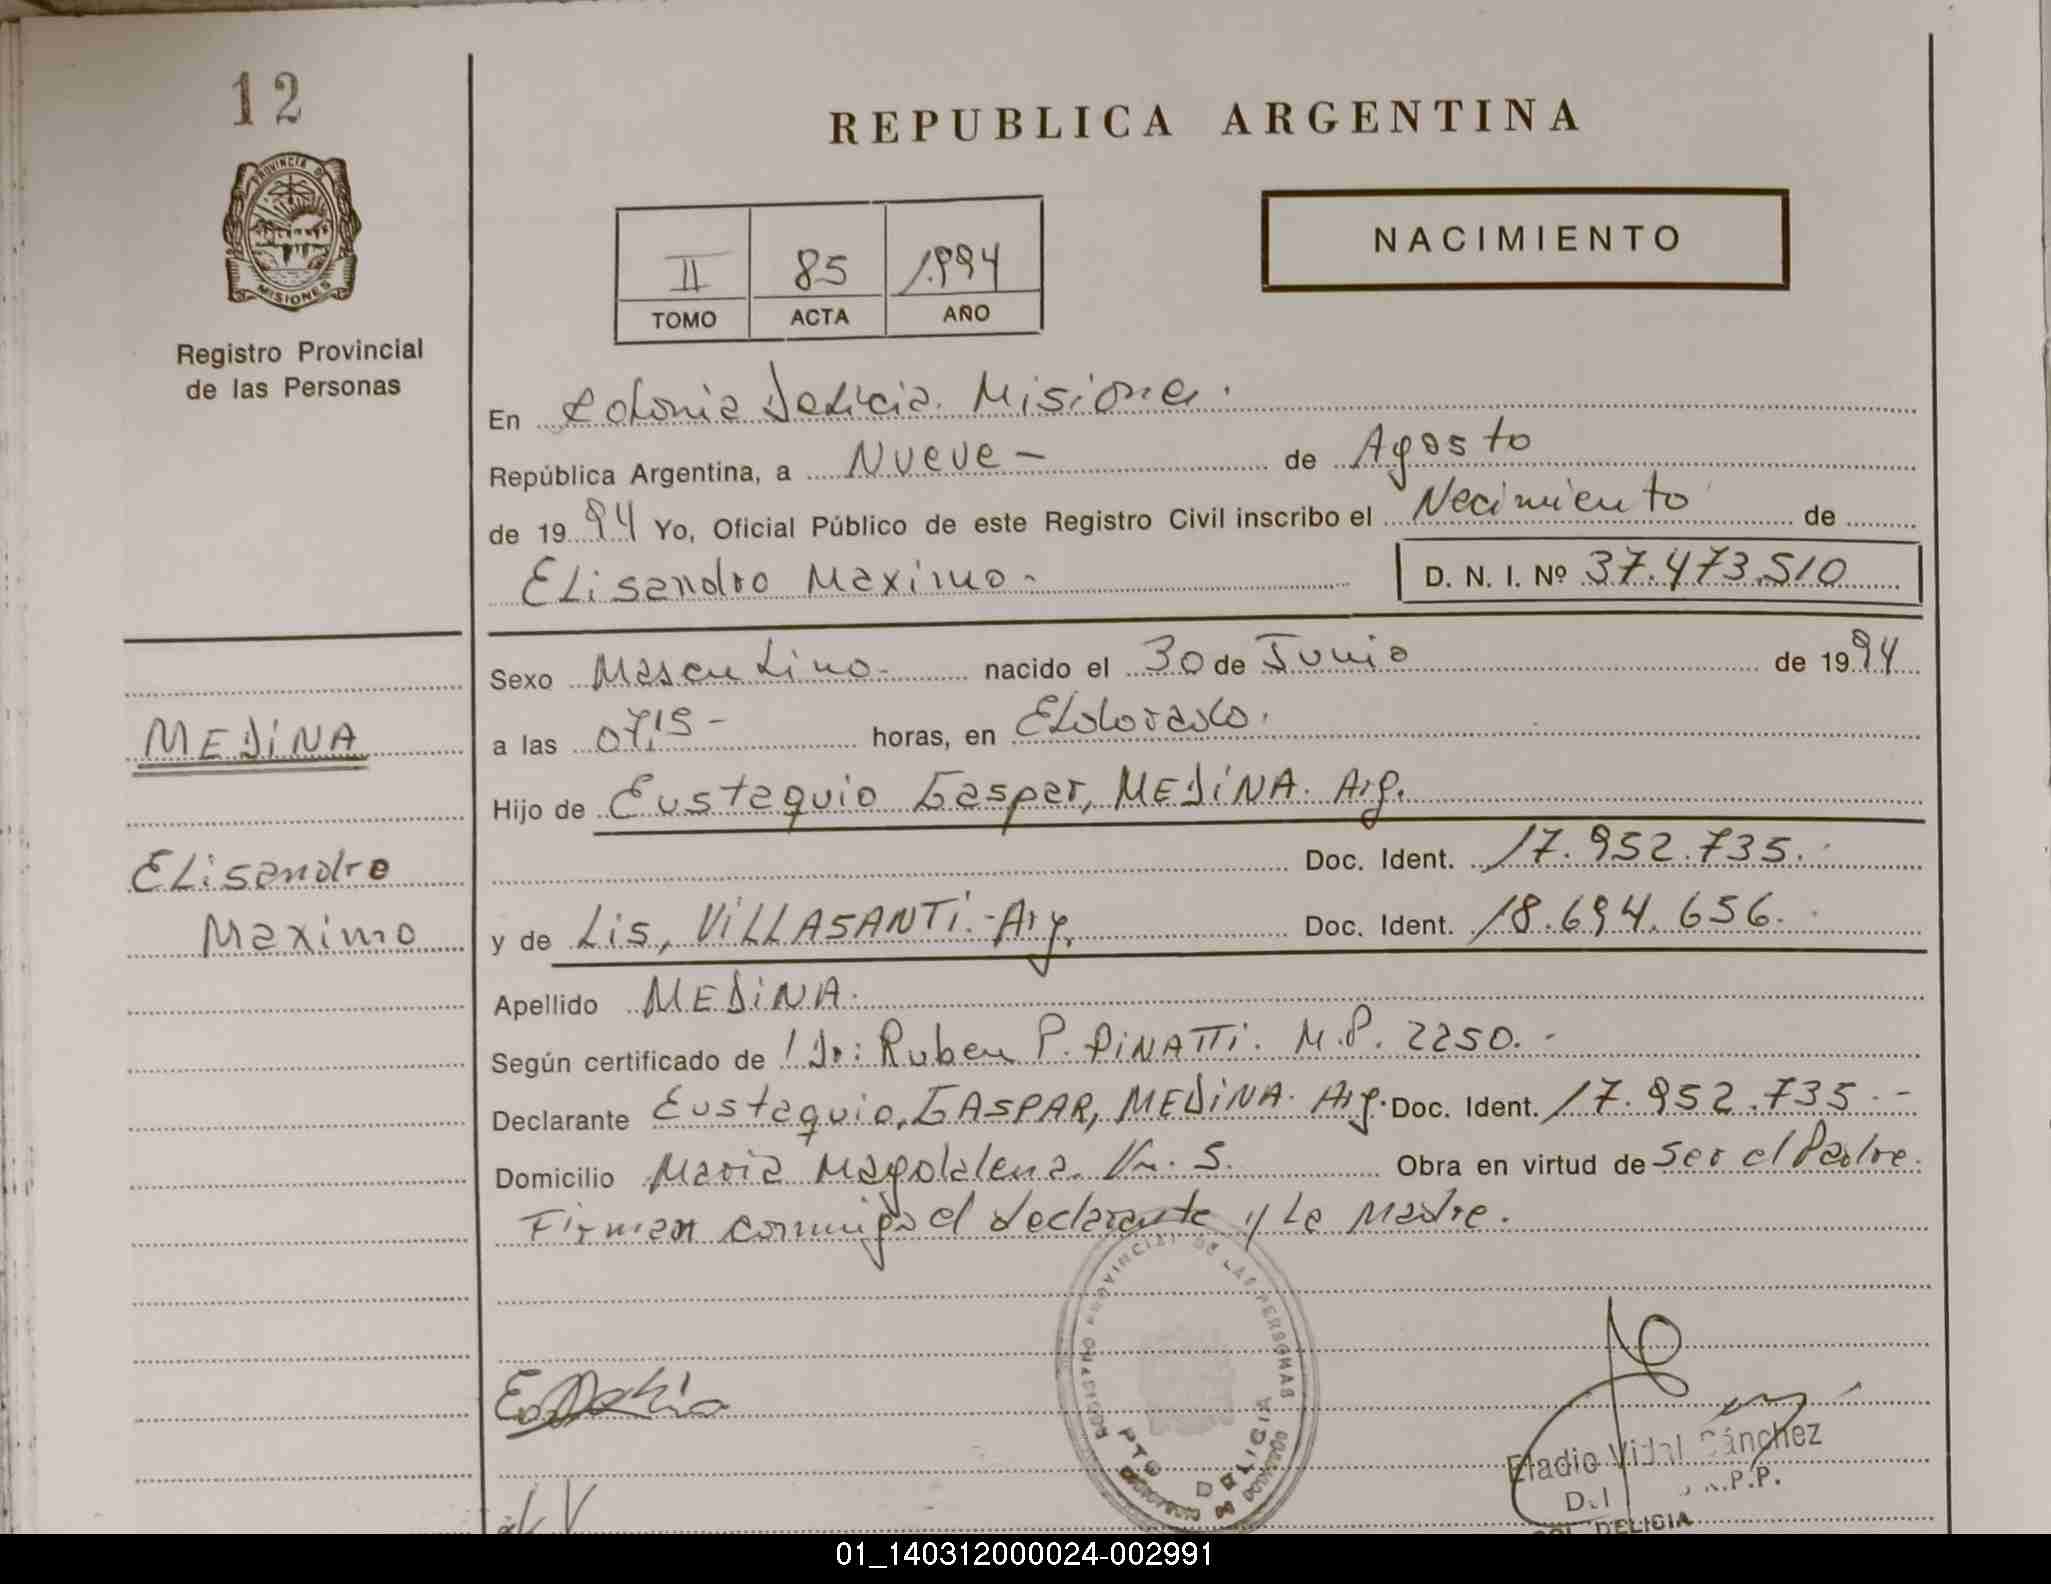 12
PROVINCIA DE
MISIONES
Registro Provincial
de las Personas
REPUBLICA ARGENTINA
NACIMIENTO
II 85 1.994
TOMO ACTA AÑO
En Colonia Delicia. Misiones.
República Argentina, a Nueve - de Agosto
de 1994 Yo, Oficial Público de este Registro Civil inscribo el Nacimiento de
Elisandro Maximo - D. N. I. Nº 37.473.510
Sexo Masculino - nacido el 30 de Junio de 1994
a las 07,15 - horas, en Eldorado.
MEDINA
Hijo de Eustaquio Gaspar, MEDINA. Arg.
Doc. Ident. 17.952.735.
Elisandro
Maximo
y de Lis, VILLASANTI. - Arg. Doc. Ident. 18.694.656.
Apellido MEDINA.
Según certificado de Dr: Ruben P. PINATTI. M.P. 2250. -
Declarante Eustaquio, GASPAR, MEDINA. Arg. Doc. Ident. 17.952.735. -
Domicilio Maria Magdalena. Km. 5. Obra en virtud de Ser el Padre.
Firman conmigo el declarante y La Madre.
REGISTRO PROVINCIAL DE LAS PERSONAS
PTO DELICIA
Eladio Vidal Sánchez
COL. DELICIA
01_140312000024-002991